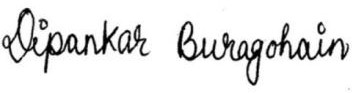 Dipankar Buragohain